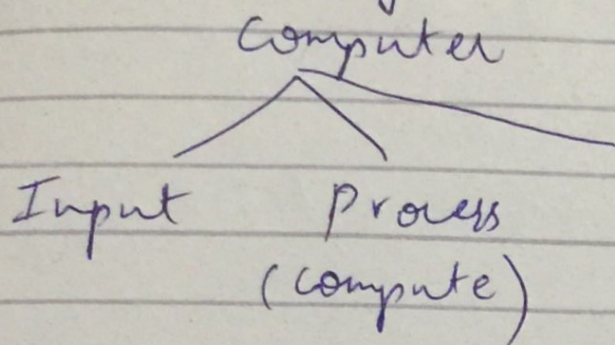 Computer
Input Process
(Compute)